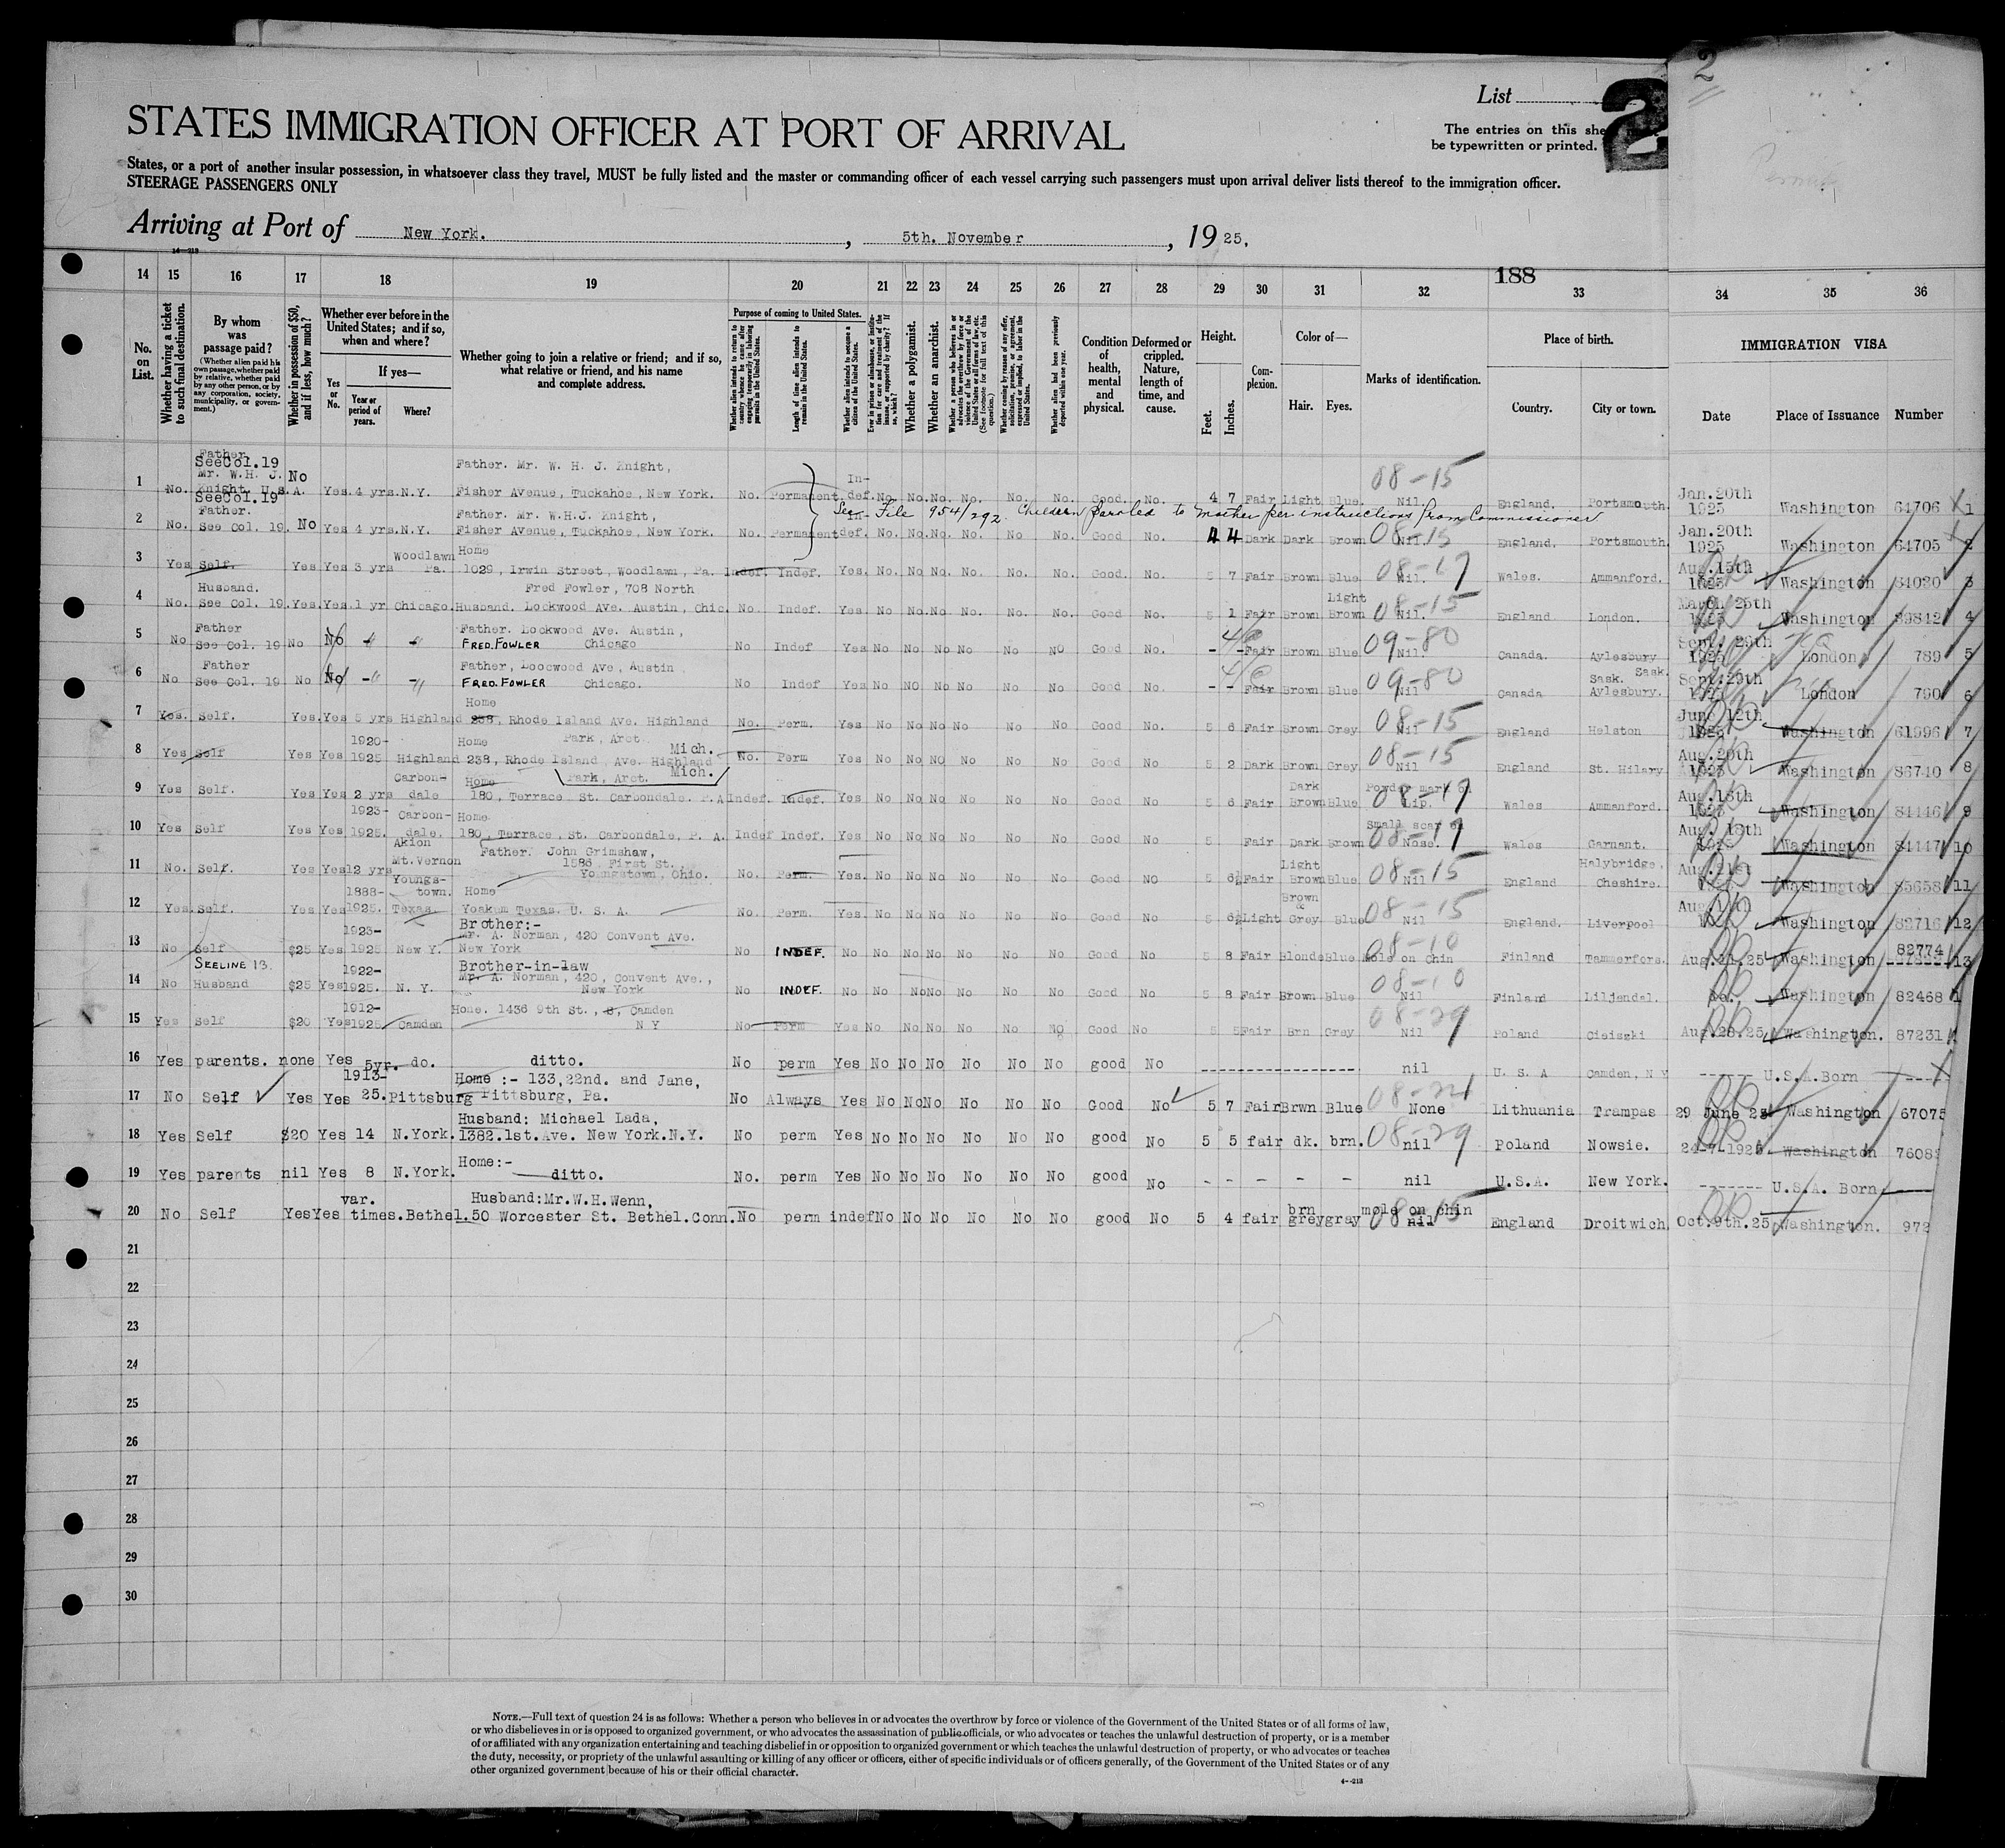 2
List
2
STATES IMMIGRATION OFFICER AT PORT OF ARRIVAL
The entries on this she
be typewritten or printed.
States, or a port of another insular possession, in whatsoever class they travel, MUST be fully listed and the master or commanding officer of each vessel carrying such passengers must upon arrival deliver lists thereof to the immigration officer.
STEERAGE PASSENGERS ONLY
Arriving at Port of New York. , 5th. November , 1925,
14—213
188
14 15 16 17 18 19 20 21 22 23 24 25 26 27 28 29 30 31 32 33 34 35 36
No. on List.
Whether having a ticket to such final destination.
By whom was passage paid?
(Whether alien paid his own passage, whether paid by relative, whether paid by any other person, or by any corporation, society, municipality, or government.)
Whether in possession of $50, and if less, how much?
Whether ever before in the United States; and if so, when and where?
Yes or No.
If yes—
Year or period of years.
Where?
Whether going to join a relative or friend; and if so, what relative or friend, and his name and complete address.
Purpose of coming to United States.
Whether alien intends to return to country whence he came after engaging temporarily in laboring pursuits in the United States.
Length of time alien intends to remain in the United States.
Whether alien intends to become a citizen of the United States.
Ever in prison or almshouse, or institution for care and treatment of the insane, or supported by charity? If so, which?
Whether a polygamist.
Whether an anarchist.
Whether a person who believes in or advocates the overthrow by force or violence of the Government of the United States or all forms of law, etc. (See footnote for full text of this question.)
Whether coming by reason of any offer, solicitation, promise, or agreement, expressed or implied, to labor in the United States.
Whether alien had been previously deported within one year.
Condition of health, mental and physical.
Deformed or crippled. Nature, length of time, and cause.
Height.
Feet. Inches.
Complexion.
Color of—
Hair. Eyes.
Marks of identification.
Place of birth.
Country. City or town.
IMMIGRATION VISA
Date Place of Issuance Number
1 No. Father SeeCol.19 Mr. W.H. J. Knight, U.S.A. No Yes 4 yrs. N.Y. Father. Mr. W. H. J. Knight, Fisher Avenue, Tuckahoe, New York. No. Permanent Indef. No. No. No. No. No. No. Good. No. 4 7 Fair Light Blue. 08-15 Nil. England. Portsmouth. Jan.20th 1925 Washington 64706 X 1
See File 954/292. Children paroled to Mother per instructions from Commissioner
2 No. SeeCol.19 Father. See Col. 19. No Yes 4 yrs. N.Y. Father. Mr. W.H.J. Knight, Fisher Avenue, Tuckahoe, New York. No. Permanent Indef. No. No. No. No. No. No. Good No. 4 4 Dark Dark Brown 08-15 Nil. England. Portsmouth. Jan.20th 1925 Washington 64705 2
3 Yes Self. Yes Yes 3 yrs Woodlawn Pa. Home 1029, Irwin Street, Woodlawn, Pa. Indef. Indef. Yes. No. No. No. No. No. No. Good. No. 5 7 Fair Brown Blue 08-17 Nil. Wales. Ammanford. Aug.15th 1925 Washington 84020 3
4 No. Husband. See Col. 19. Yes. Yes. 1 yr Chicago. Fred Fowler, 708 North Husband. Lockwood Ave. Austin, Chic. No. Indef. Yes No. No. No. No. No. No. Good No. 5 1 Fair Brown Light Brown 08-15 Nil. England London. March 25th 1925 Washington 89842 4
5 No Father See Col. 19 No No Father. Lockwood Ave. Austin, FRED. FOWLER Chicago No Indef Yes No No No No No No Good No. 4/6 Fair Brown Blue 09-80 Nil. Canada. Aylesbury Sask. Sept. 26th 1925 London 789 5
6 No Father See Col. 19 No No Father, Loocwood Ave, Austin FRED. FOWLER Chicago. No Indef Yes No NO No No No No Good No. 4/6 Fair Brown Blue 09-80 Nil Canada Sask. Aylesbury. Sept. 29th London 790 6
7 Yes. Self. Yes. Yes 5 yrs Highland Home 238, Rhode Island Ave. Highland Park, Arot. Mich. No. Perm. Yes No No No No No No Good No. 5 6 Fair Brown Grey 08-15 Nil England Helston June 12th Washington 61996 7
8 Yes Self Yes Yes 1920-1925 Highland Home 238, Rhode Island Ave. Highland Park, Arot. Mich. No. Perm Yes No No NO No No No Good No 5 2 Dark Brown Grey 08-15 Nil England St. Hilary Aug.20th 1925 Washington 86740 8
9 Yes Self. Yes Yes 2 yrs Carbondale Home 180, Terrace St. Carbondale. P.A Indef. Indef. Yes No No No No No No Good No 5 6 Fair Dark Brown Blue Powder mark on Lip. 08-17 Wales Ammanford. Aug.18th 1925 Washington 84446 9
10 Yes Self Yes Yes 1923-1925. Carbondale. Home 180, Terrace, St. Carbondale, P. A. Indef Indef. Yes No No No No No No Good No 5 Fair Dark Brown Small scar on Nose. 08-17 Wales Garnant. Aug. 18th Washington 84447 10
11 No. Self. Yes Yes 12 yrs Akion Mt.Vernon Youngstown. Father. John Grimshaw, 1586, First St., Youngstown, Ohio. No. Perm. Yes. No No No No No No Good NO 5 6½ Fair Light Brown Blue 08-15 Nil England Halybridge. Cheshire. Aug.21st Washington 85658 11
12 Yes. Self. Yes Yes 1888-1925. Texas Home Yoakum Texas. U. S. A. No. Perm. Yes. No No No No No No Good No 5 6½ Light Brown & Grey Blue 08-15 Nil England. Liverpool Washington 82716 12
13 No Self $25 Yes 1923-1925 New Y. Brother:- Mr. A. Norman, 420 Convent Ave. New York No INDEF. No No No No No No No Good No 5 8 Fair Blonde Blue 08-10 Mole on Chin Finland Tammerfors. Aug.11.25 Washington 82774 13
14 No SEE LINE 13. Husband $25 Yes 1922-1925. N. Y. Brother-in-law Mr. A. Norman, 420, Convent Ave., New York No INDEF. No No No No No No No Good No 5 8 Fair Brown Blue 08-10 Nil Finland Liljendal. do. Washington 82468
15 Yes Self $20 Yes 1912-1925 Camden Home. 1436 9th St., S, Camden N Y No Perm Yes No No No No No No Good No 5 5 Fair Brn Grey 08-29 Nil Poland Cieiszki Aug.28.25 Washington. 87231
16 Yes parents. none Yes 5yr. do. ditto. No perm Yes No No No No No No good No nil U. S. A Camden, N Y U.S.A.Born
17 No Self Yes Yes 1913-25. Pittsburg Home :- 133,22nd. and Jane, Pittsburg, Pa. No Always Yes No No No No No No Good No 5 7 Fair Brwn Blue 08-24 None Lithuania Trampas 29 June 25 Washington 67075
18 Yes Self $20 Yes 14 N.York. Husband: Michael Lada, 1382.1st.Ave. New York.N.Y. No perm Yes No No No No No No good No 5 5 fair dk. brn. 08-29 nil Poland Nowsie. 24-7-1925 Washington 7608
19 Yes parents nil Yes 8 N.York. Home:- ditto. No. perm Yes No No No No No No good No - - - - - nil U.S.A. New York. U.S.A. Born
20 No Self Yes Yes var. times. Bethel. Husband:Mr.W.H.Wenn, 50 Worcester St. Bethel.Conn. No perm indef No No No No No No good No 5 4 fair brn grey gray mole on chin nil 08-15 England Droitwich Oct.9th.25 Washington. 972
21
22
23
24
25
26
27
28
29
30
NOTE.—Full text of question 24 is as follows: Whether a person who believes in or advocates the overthrow by force or violence of the Government of the United States or of all forms of law,
or who disbelieves in or is opposed to organized government, or who advocates the assassination of public officials, or who advocates or teaches the unlawful destruction of property, or is a member
of or affiliated with any organization entertaining and teaching disbelief in or opposition to organized government or which teaches the unlawful destruction of property, or who advocates or teaches
the duty, necessity, or propriety of the unlawful assaulting or killing of any officer or officers, either of specific individuals or of officers generally, of the Government of the United States or of any
other organized government because of his or their official character.
4—213